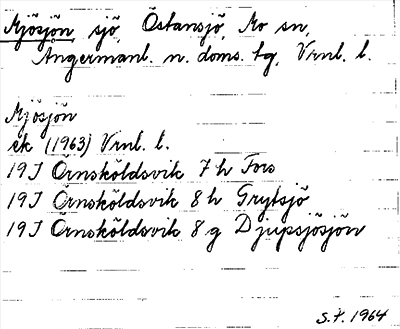 Mjösjön, sjö, Östansjö, Mo sn,
Ångermanl. n. doms. tg, Vrnl. l.
Mjösjön
ek (1963) Vrnl. l.
19J Örnsköldsvik 7h Fors
19J Örnsköldsvik 8h Grytsjö
19J Örnsköldsvik 8g Djupsjösjön
S.F. 1964